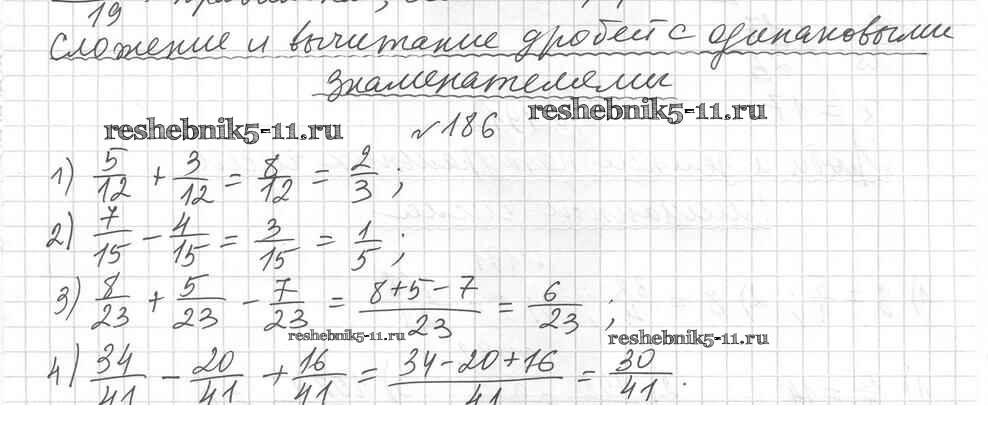 19
Сложение и вычитание дробей с одинаковыми
знаменателями
reshebnik5-11.ru №186 reshebnik5-11.ru
1) 5/12 + 3/12 = 8/12 = 2/3 ;
2) 7/15 - 4/15 = 3/15 = 1/5 ;
3) 8/23 + 5/23 - 7/23 = (8+5-7)/23 = 6/23 ;
reshebnik5-11.ru reshebnik5-11.ru
4) 34/41 - 20/41 + 16/41 = (34-20+16)/41 = 30/41 .